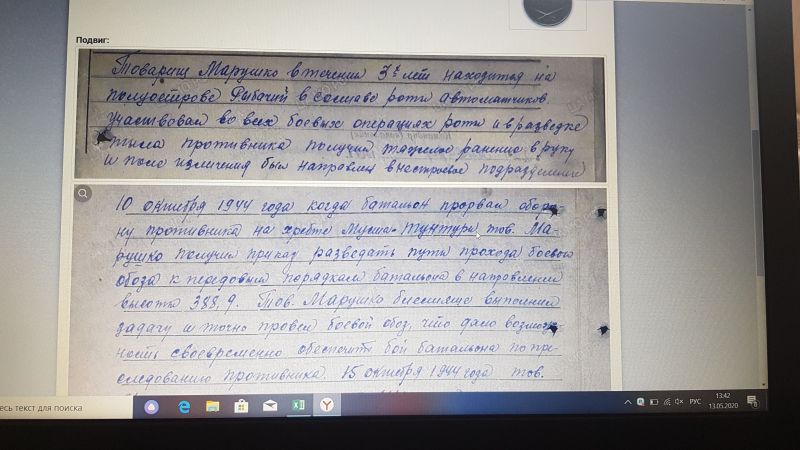 Подвиг:
Товарищ Марушко в течении 3х лет находится на
полуострове Рыбачий в составе роты автоматчиков.
Участвовал во всех боевых операциях роты и в разведке
тыла противника получил тяжелое ранение в руку
и после излечения был направлен в нестроевое подразделение
10 октября 1944 года когда батальон прорвал оборо-
ну противника на хребте Муста-Тунтури тов. Ма-
рушко получил приказ разведать пути прохода боевого
обоза к передовым порядкам батальона в направлении
высоты 388,9. Тов. Марушко выполнил
задачу и точно провел боевой обоз, что дало возмож-
ность своевременно обеспечить бой батальона по пре-
следованию противника. 15 октября 1944 года тов.
есь текст для поиска
РУС
13:42
13.05.2020